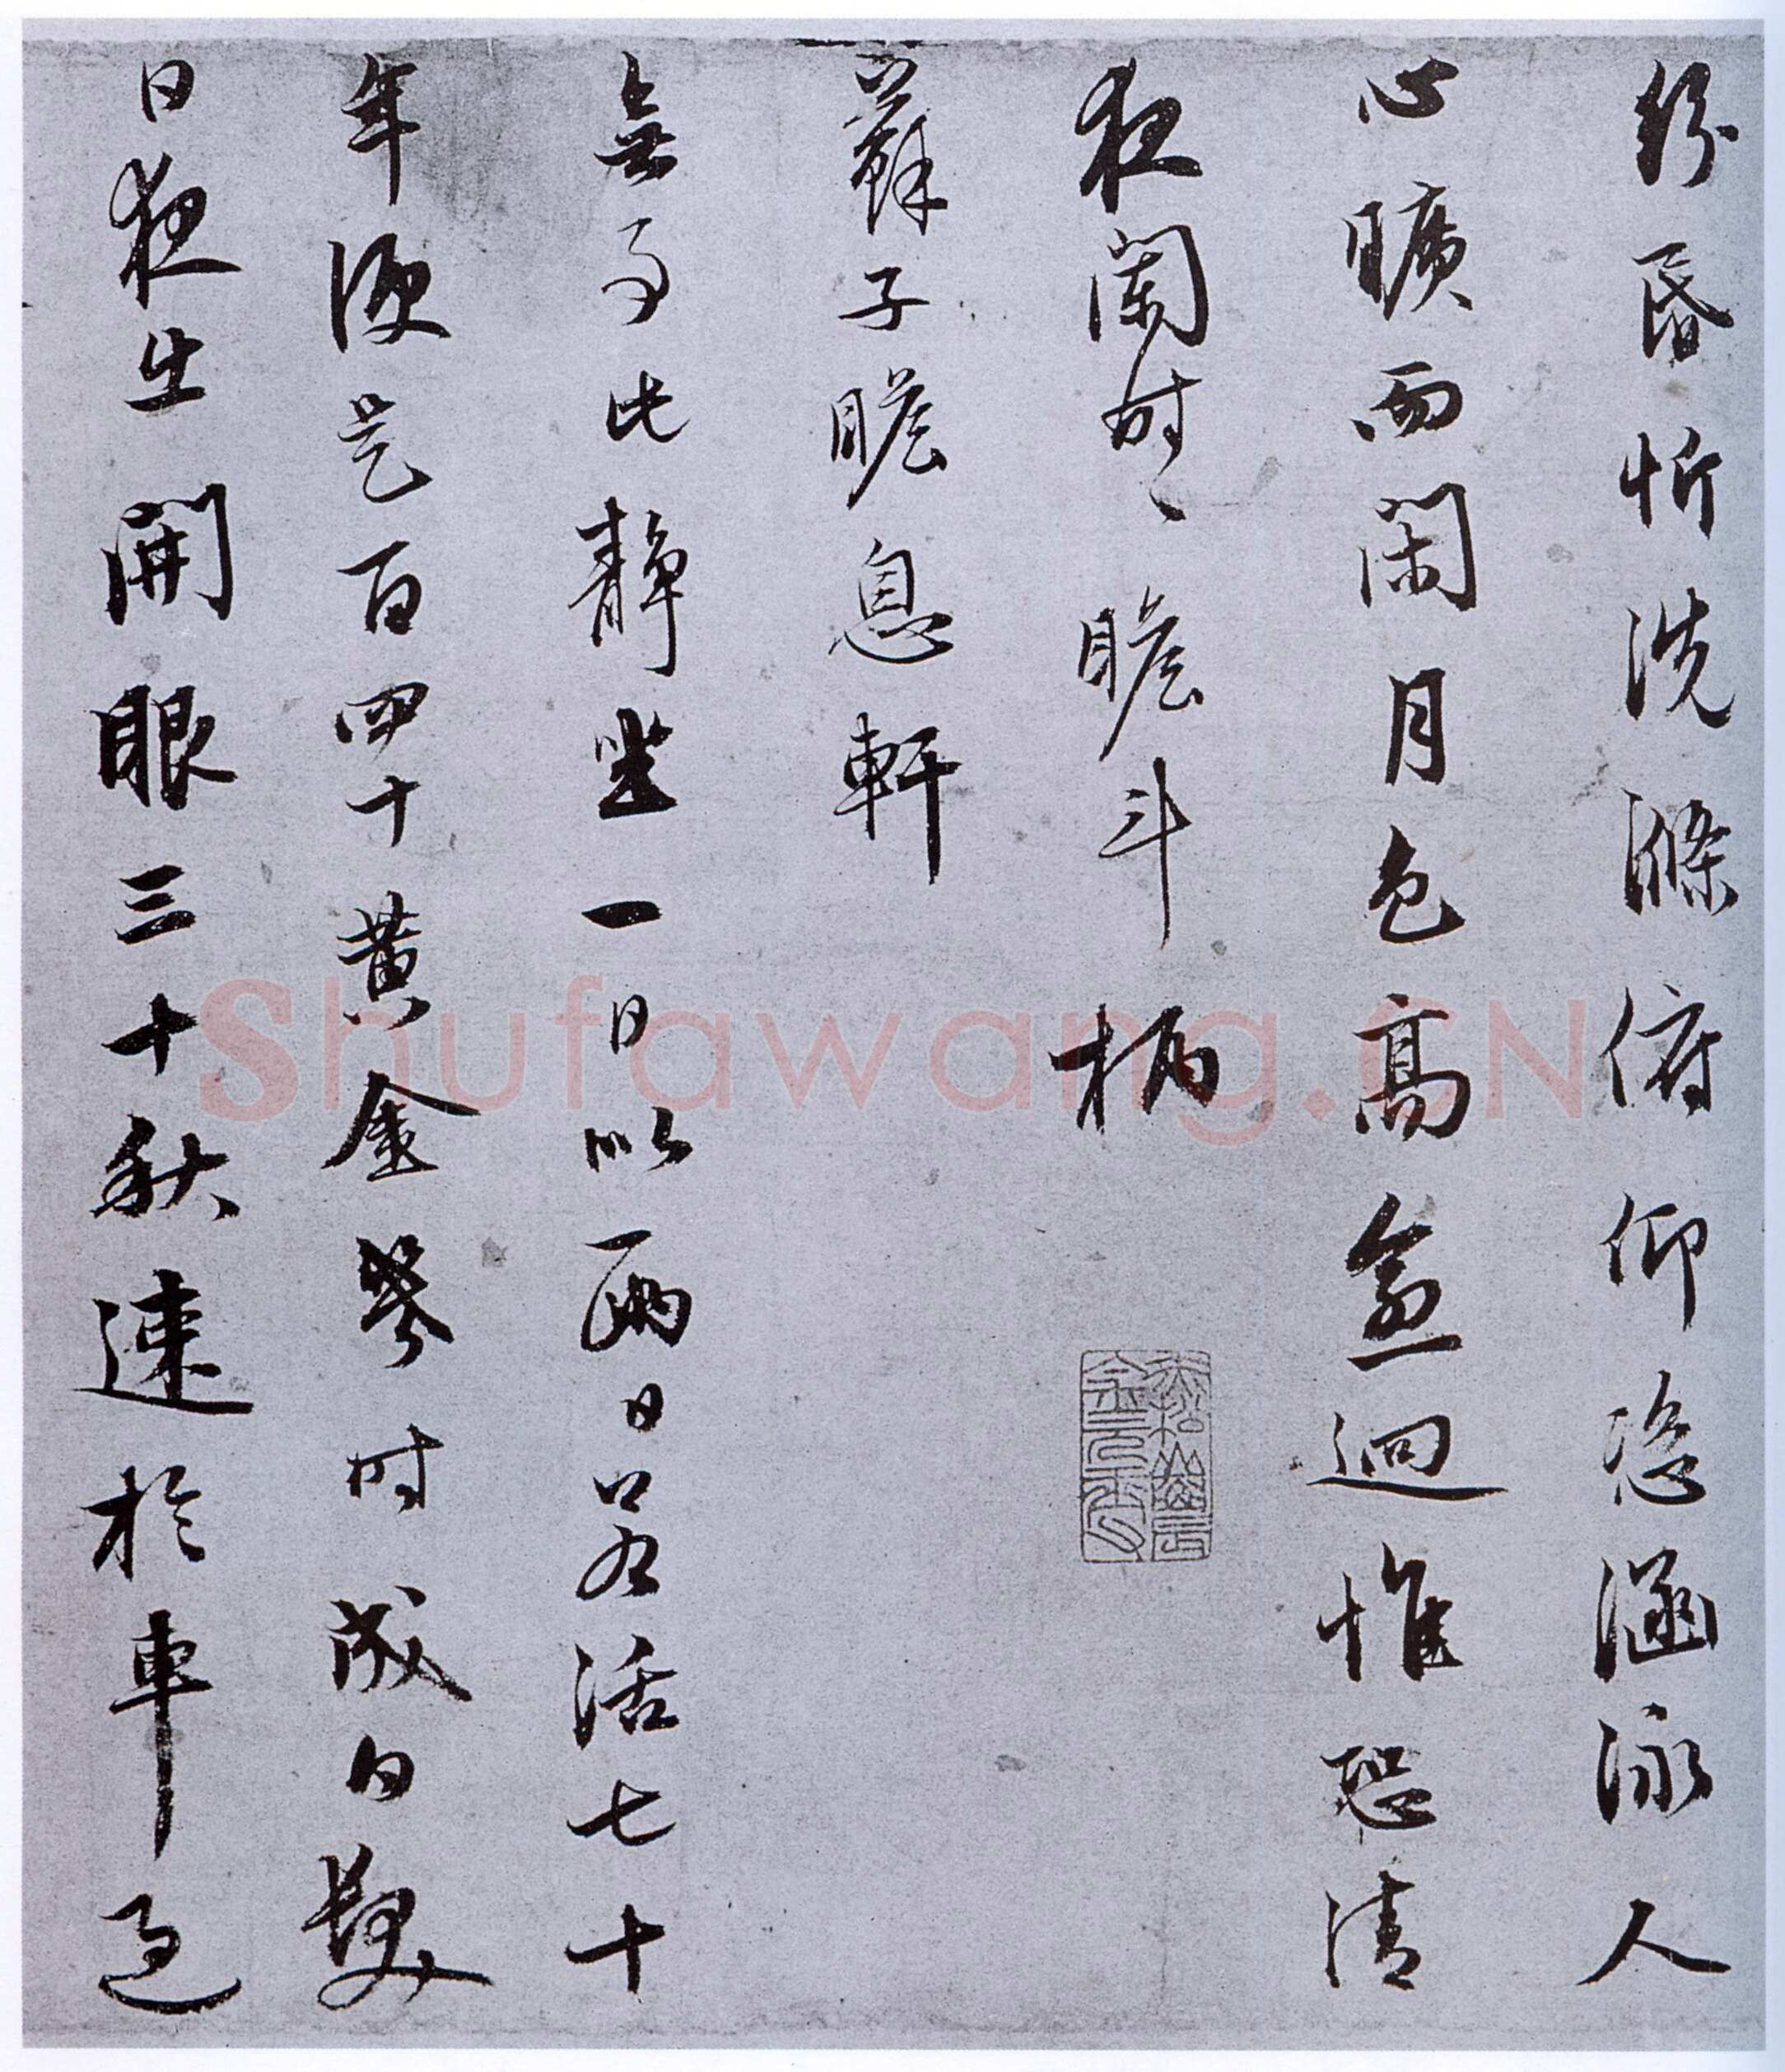 紛昏忻洗滌俯仰恣涵泳人
心曠而閑月色高愈迥惟恐清
夜闌時〻瞻斗柄
蘇子瞻息軒
無事此靜坐一日以兩日若活七十
年便是百四十黃金幾時成白髮
日夜出開眼三十秋速於車過
Shufawang.CN